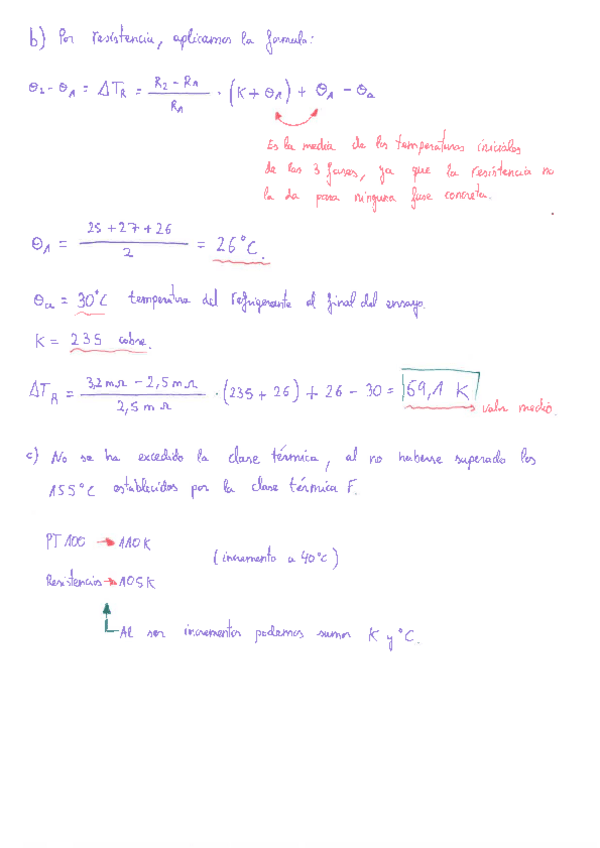 b) Por resistencia, aplicamos la formula:
θ2 - θ1 = ΔTR = (R2 - R1)/R1 · (K + θ1) + θ1 - θa
Es la media de las temperaturas iniciales
de las 3 fases, ya que la resistencia no
la da para ninguna fase concreta.
θ1 = (25 + 27 + 26)/2 = 26°C.
θa = 30°C temperatura del refrigerante al final del ensayo.
K = 235 cobre.
ΔTR = (3,2 mΩ - 2,5 mΩ)/(2,5 mΩ) · (235 + 26) + 26 - 30 = 69,1 K
valor medio.
c) No se ha excedido la clase térmica, al no haberse superado los
155°C establecidos por la clase térmica F.
PT 100 → 110 K
(incremento a 40°C)
Resistencias → 105 K
Al ser incrementos podemos sumar K y °C.